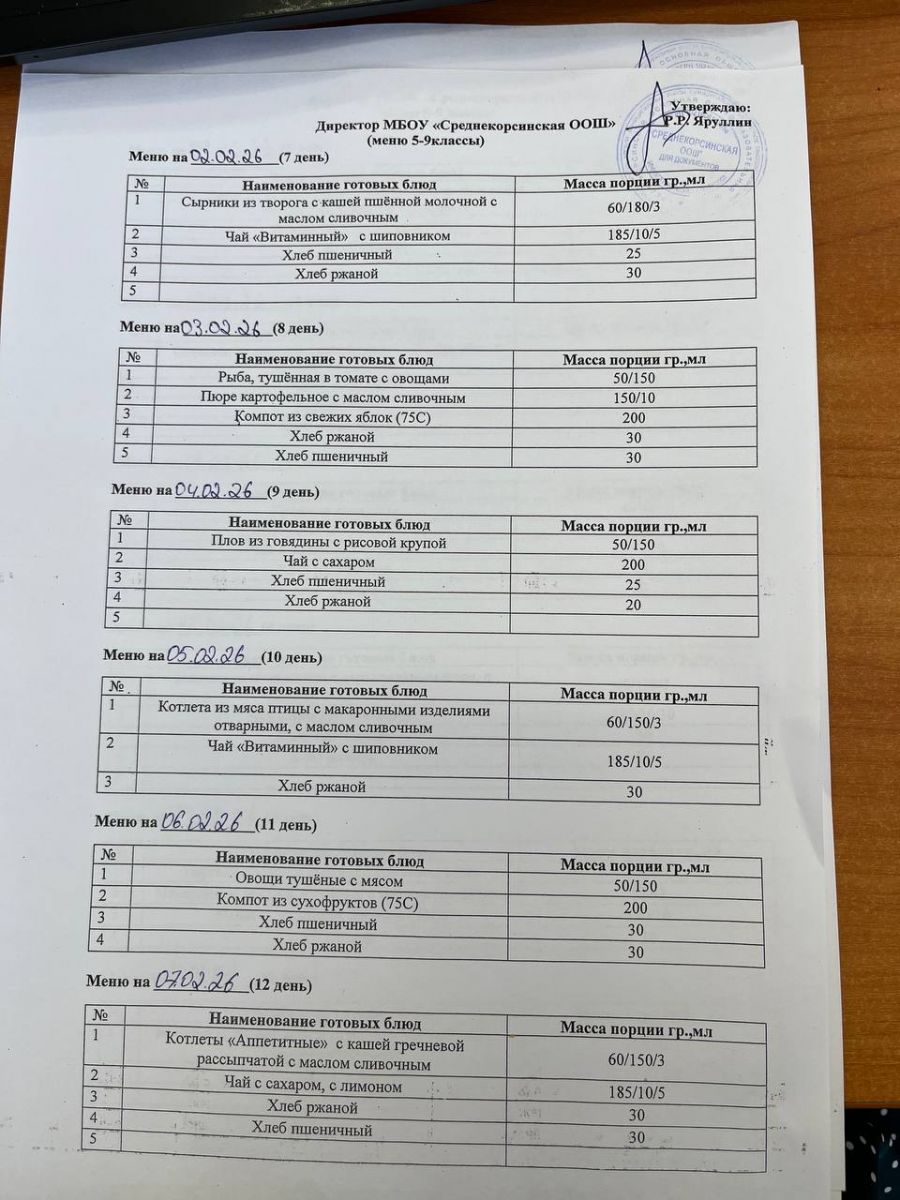 Утверждаю:
Директор МБОУ «Среднекорсинская ООШ» Р.Р. Яруллин
(меню 5-9классы)
СРЕДНЕКОРСИНСКАЯ
ООШ"
ДЛЯ ДОКУМЕНТОВ
Меню на 02.02.26 (7 день)
№ Наименование готовых блюд Масса порции гр.,мл
1 Сырники из творога с кашей пшённой молочной с
маслом сливочным 60/180/3
2 Чай «Витаминный» с шиповником 185/10/5
3 Хлеб пшеничный 25
4 Хлеб ржаной 30
5
Меню на 03.02.26 (8 день)
№ Наименование готовых блюд Масса порции гр.,мл
1 Рыба, тушённая в томате с овощами 50/150
2 Пюре картофельное с маслом сливочным 150/10
3 Компот из свежих яблок (75С) 200
4 Хлеб ржаной 30
5 Хлеб пшеничный 30
Меню на 04.02.26 (9 день)
№ Наименование готовых блюд Масса порции гр.,мл
1 Плов из говядины с рисовой крупой 50/150
2 Чай с сахаром 200
3 Хлеб пшеничный 25
4 Хлеб ржаной 20
5
Меню на 05.02.26 (10 день)
№ Наименование готовых блюд Масса порции гр.,мл
1 Котлета из мяса птицы с макаронными изделиями
отварными, с маслом сливочным 60/150/3
2 Чай «Витаминный» с шиповником 185/10/5
3 Хлеб ржаной 30
Меню на 06.02.26 (11 день)
№ Наименование готовых блюд Масса порции гр.,мл
1 Овощи тушёные с мясом 50/150
2 Компот из сухофруктов (75С) 200
3 Хлеб пшеничный 30
4 Хлеб ржаной 30
Меню на 07.02.26 (12 день)
№ Наименование готовых блюд Масса порции гр.,мл
1 Котлеты «Аппетитные» с кашей гречневой
рассыпчатой с маслом сливочным 60/150/3
2 Чай с сахаром, с лимоном 185/10/5
3 Хлеб ржаной 30
4 Хлеб пшеничный 30
5